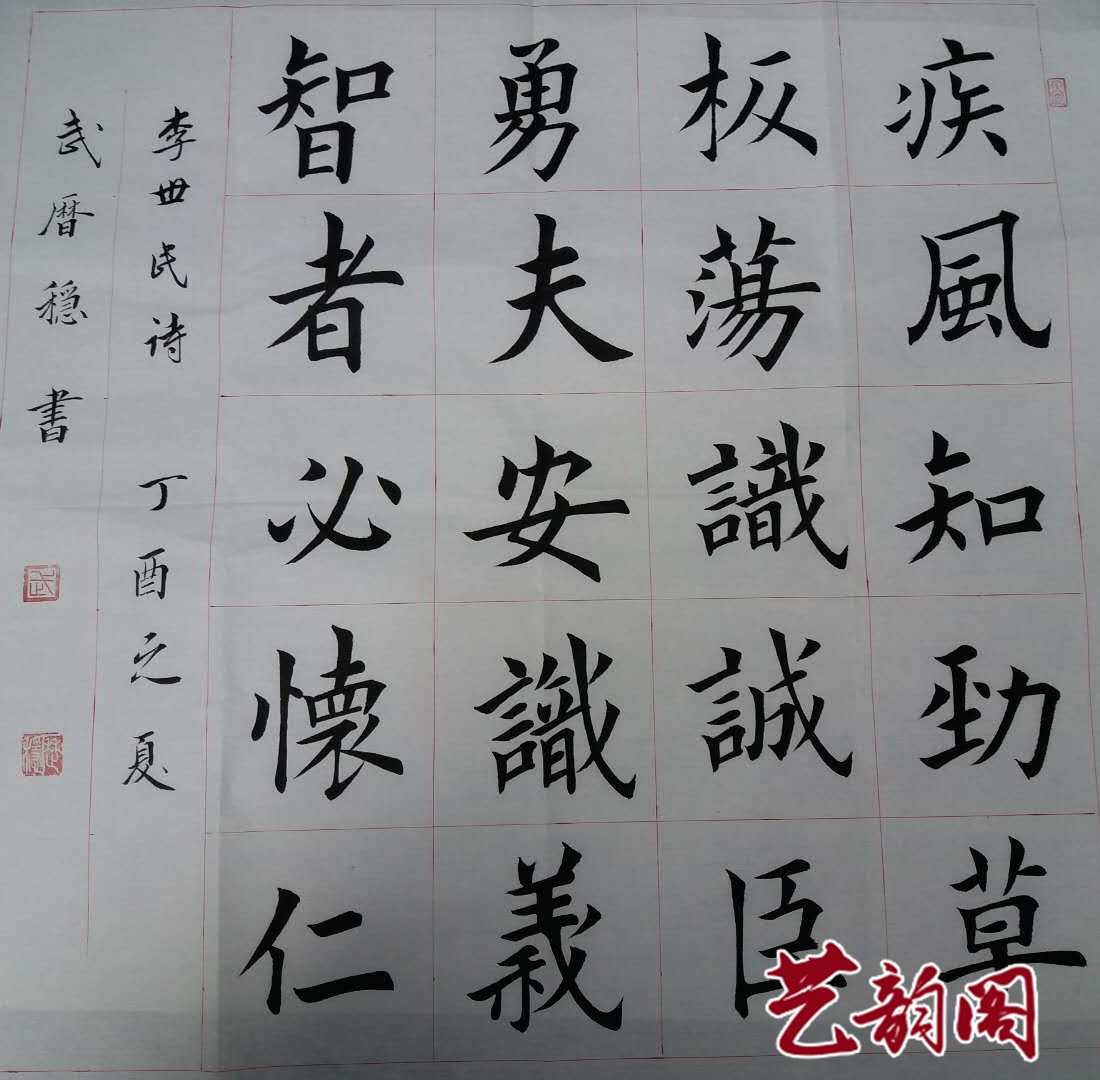 疾風知勁草
板蕩識誠臣
勇夫安識義
智者必懷仁
李世民诗 丁酉之夏
武曆穩書
武
艺韵阁